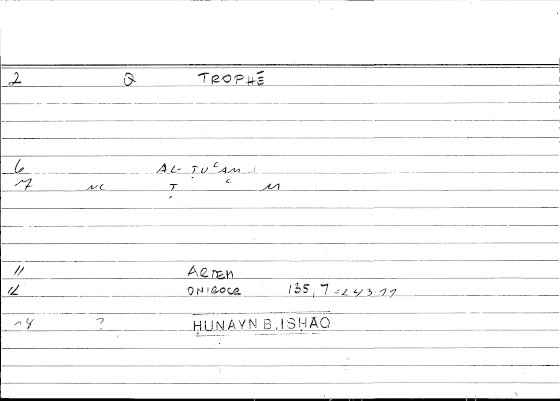 2 Q TROPHĒ
6 AL-ṬUʿAM
7 NC Ṭ ʿ M
11 ARTEM
12 ONIROCR 135,7=243.11
14 ? ḤUNAYN B. ISḤAQ